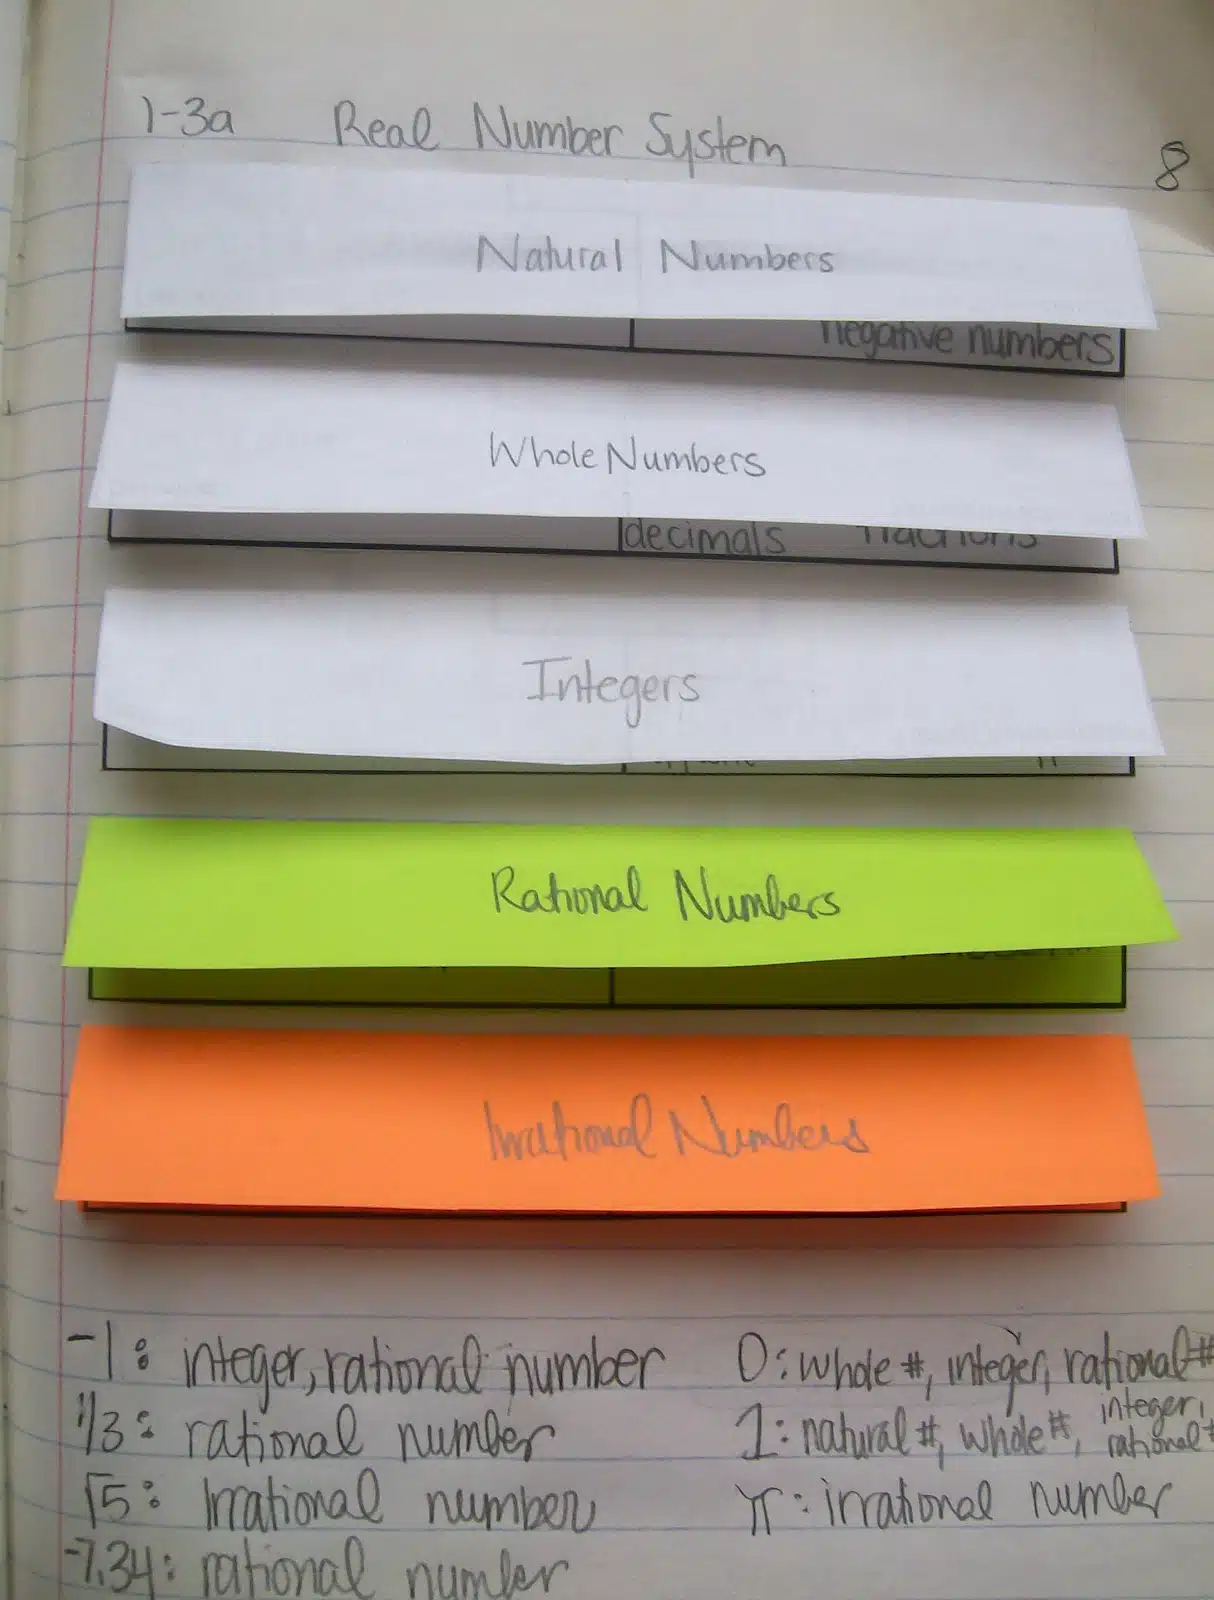 1-3a Real Number System
8
Natural Numbers
negative numbers
Whole Numbers
decimals fractions
Integers
Rational Numbers
Irrational Numbers
-1: integer, rational number
0: whole #, integer, rational #
1/3: rational number
1: natural #, whole #, integer, rational #
√5: Irrational number
π: irrational number
-7.34: rational number